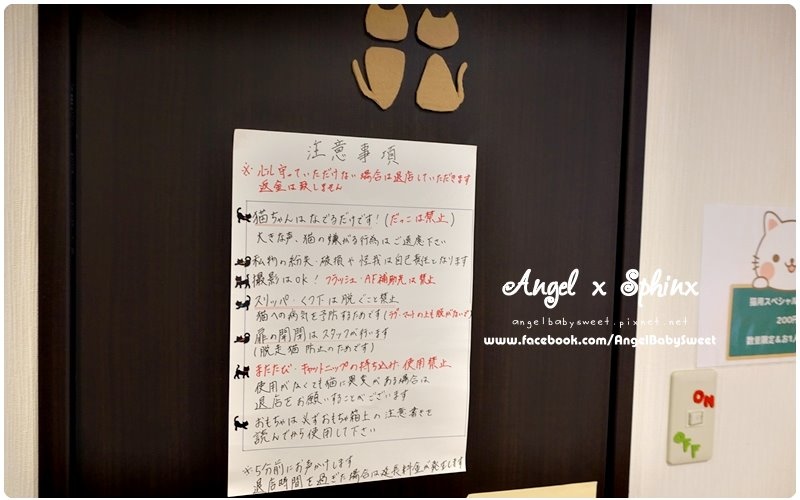 注意事項
※心し守っていただけない場合は退店していただきます
返金は致しません
猫ちゃんはなでるだけです!(だっこは禁止)
大きな声、猫の嫌がる行為はご遠慮下さい
私物の紛失・破損や怪我は自己責任となります
撮影はOK! フラッシュ・AF補助光は禁止
スリッパ・くつ下は脱ぐこと禁止
猫への病気を予防するためです(ラグ・マートの上も脱がないで)
扉の開閉はスタッフが行います
(脱走猫防止のためです)
またたび・キャットニップの持ち込み・使用禁止
使用がなくても猫に異変がある場合は
退店をお願いすることがございます
おもちゃは必ずおもちゃ箱上の注意書きを
読んでから使用して下さい
※5分前にお声かけします
退店時間を過ぎた場合は延長料金が発生します
Angel x Sphinx
angelbabysweet.pixnet.net
www.facebook.com/AngelBabySweet
猫用スペシャル
200円
数量限定&お1人
ON
OFF